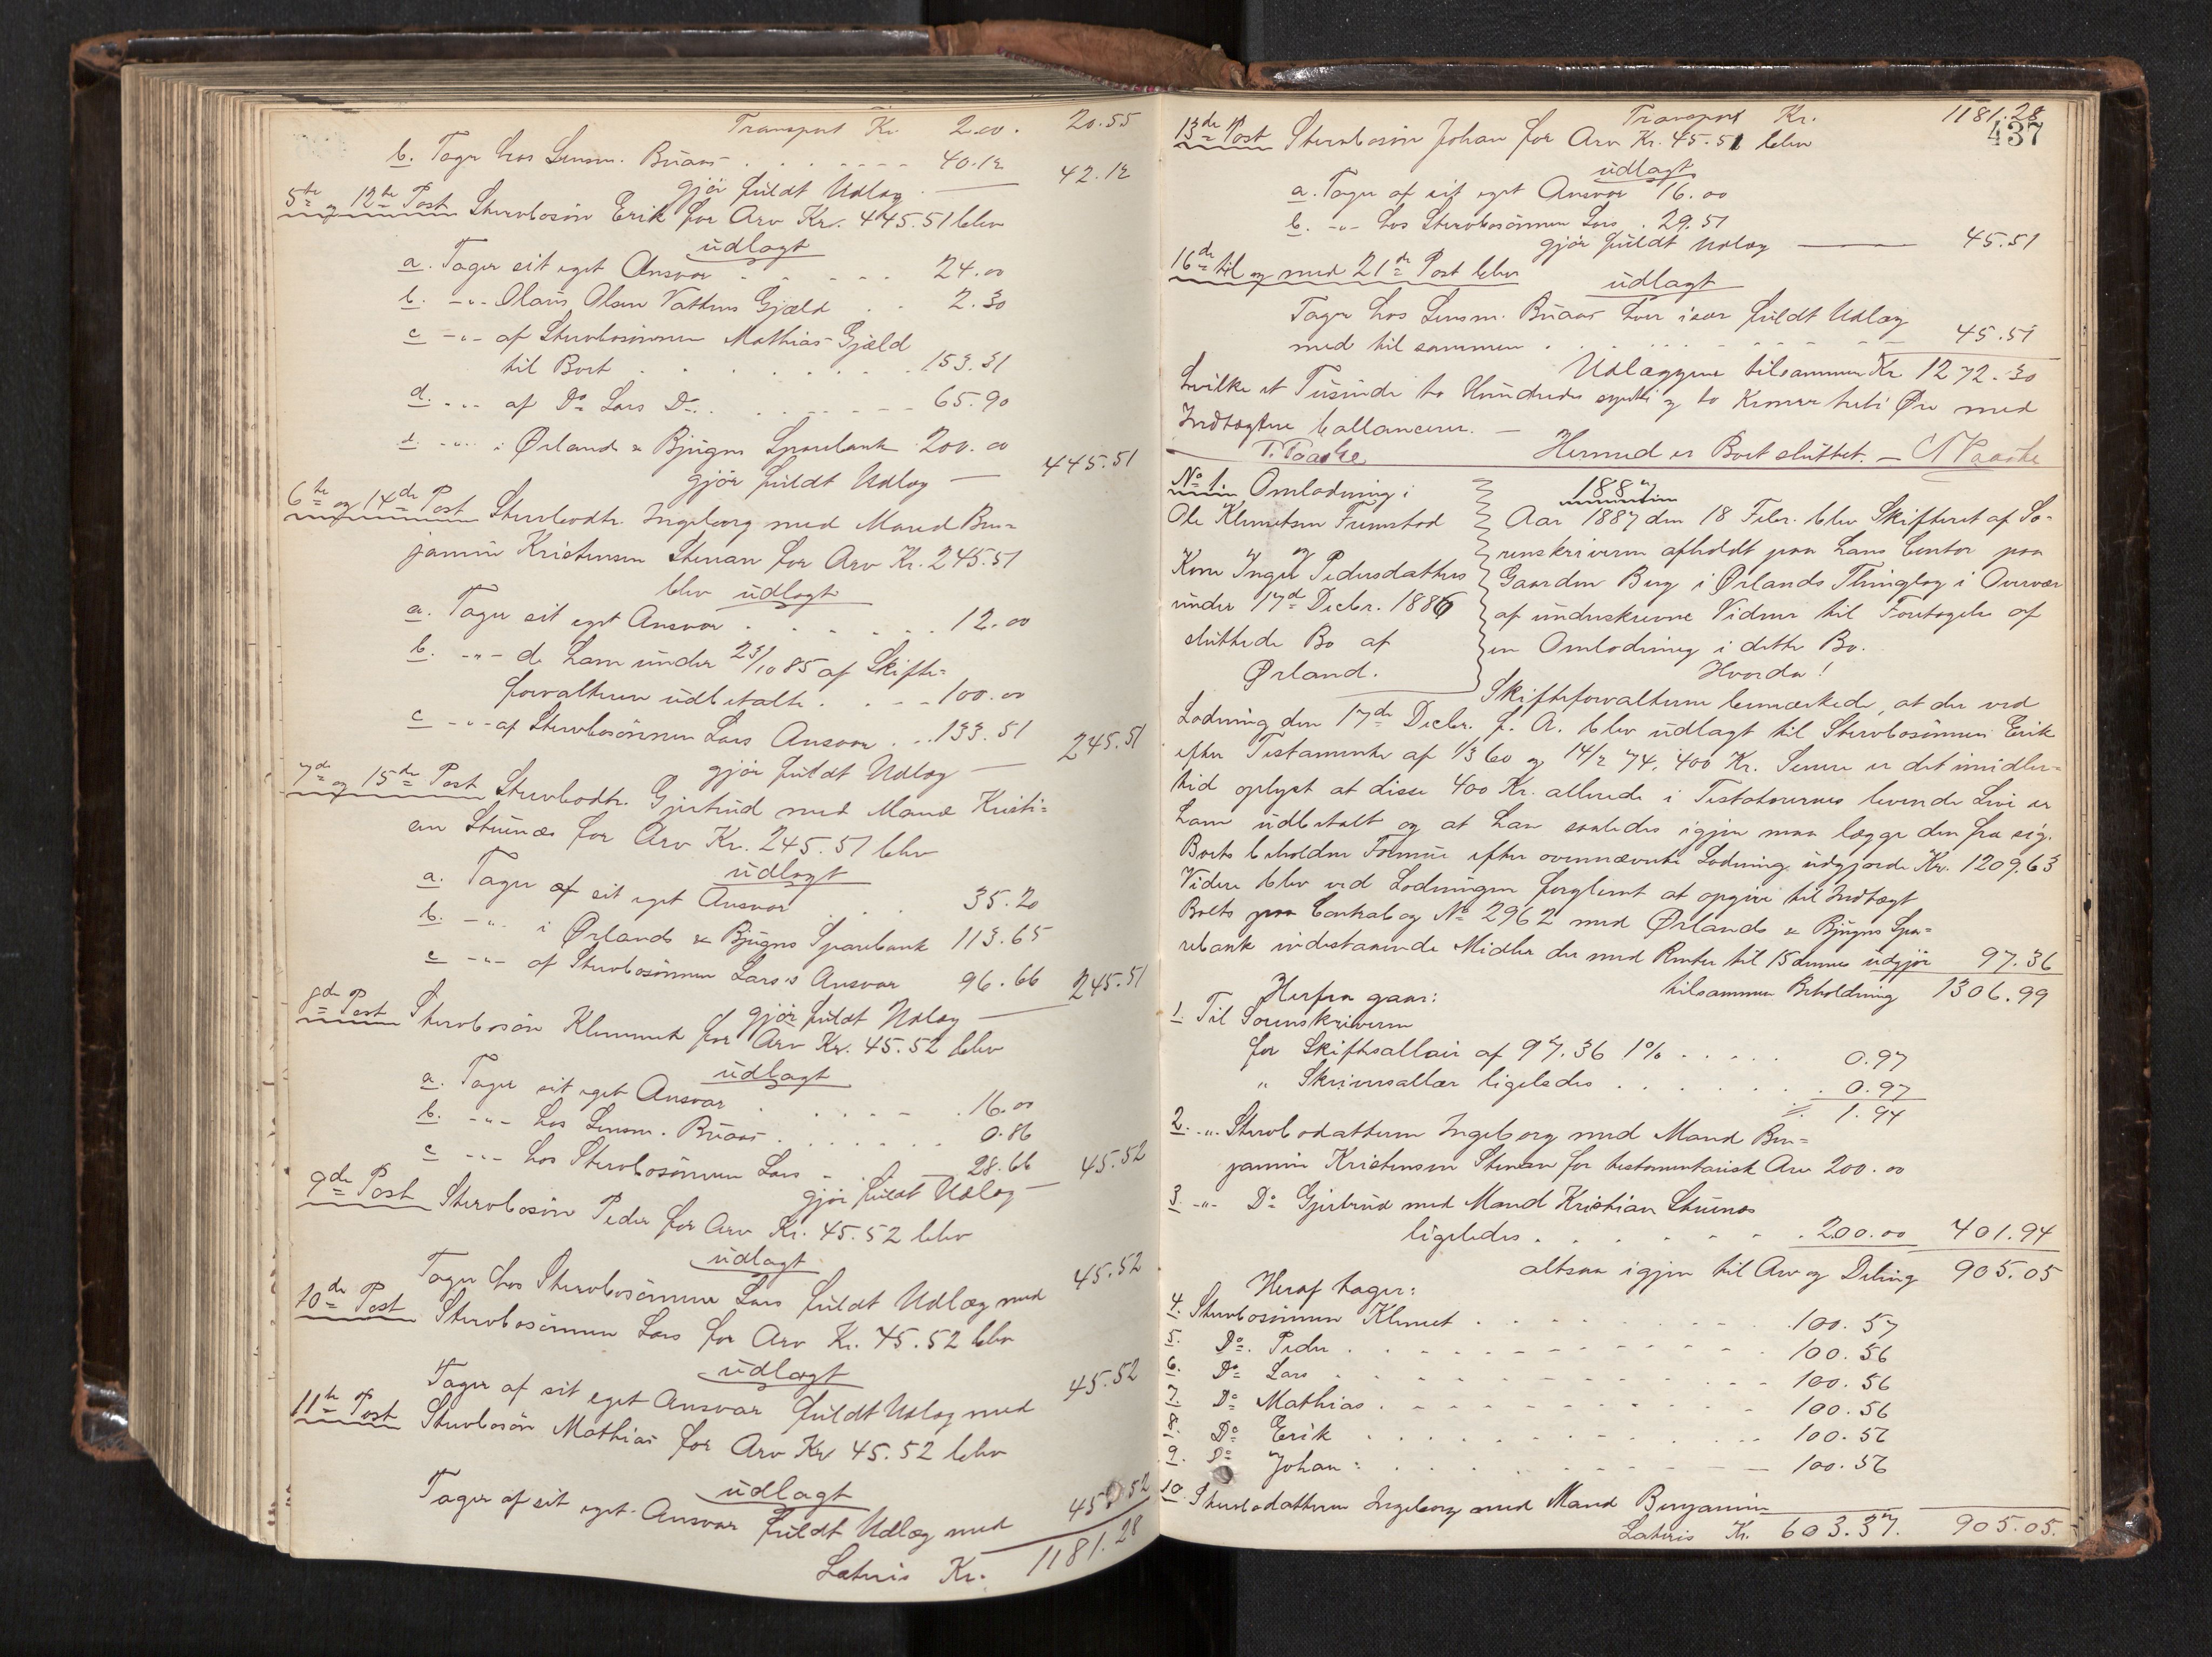 Transport Kr. 2.00. 20.55
b. Tager hos Lensm. Buaas . . . . . . 40.12
gjør fuldt Udlæg — 42.12
5te og 12te Post Stervbosøn Erik for Arv Kr. 445.51 blev
udlagt
a. Tager sit eget Ansvar . . . . . 24.00
b. -"- Olaus Olsen Vatnes Gjæld . . 2.30
c -"- af Stervbosønnen Mathias Gjæld
til Boet . . . . . . . 153.31
d. -"- af Do Lars Do . . . . . . . 65.90
d. -"- i Ørland & Bjugns Sparebank 200.00
gjør fuldt Udlæg — 445.51
6te og 14de Post Stervbodtr. Ingeborg med Mand Ben=
jamin Kristensen Stenan for Arv Kr. 245.51
blev udlagt
a. Tager sit eget Ansvar . . . . . . 12.00
b. -"- de ham under 23/10 85 af Skifte=
forvalteren udbetalte . . . . 100.00
c -"- af Stervbosønnen Lars Ansvar . . . 133.51
gjør fuldt Udlæg — 245.51
7de og 15de Post Stervbodtr. Gjertrud med Mand Kristi=
an Stuenæs for Arv Kr. 245.51 blev
udlagt
a. Tager af sit eget Ansvar . . . 35.20
b. -"- i Ørlands & Bjugns Sparebank 113.65
c -"- af Stervbosønnen Lars's Ansvar 96.66
gjør fuldt Udlæg — 245.51
8de Post Stervbosøn Klemmet for Arv Kr. 45.52 blev
udlagt
a. Tager sit eget Ansvar . . . . . . 16.00
b. -"- hos Lensm. Buaas . . . . . . 0.86
c -"- hos Stervbosønnen Lars . . . 28.66
gjør fuldt Udlæg — 45.52
9de Post Stervbosøn Peder for Arv Kr. 45.52 blev
udlagt
Tager hos Stervbosønnen Lars fuldt Udlæg med 45.52
10de Post Stervbosønnen Lars for Arv Kr. 45.52 blev
udlagt
Tager af sit eget Ansvar fuldt Udlæg med 45.52
11te Post Stervbosøn Mathias for Arv Kr 45.52 blev
udlagt
Tager af sit eget Ansvar fuldt Udlæg med 45.52
Lateris Kr. 1181.28
Transport Kr. 1181.28
437
13de Post Stervbosøn Johan for Arv Kr. 45.51 blev
udlagt
a. Tager af sit eget Ansvar 16.00
b. -"- hos Stervbosønnen Lars . 29.51
gjør fuldt Udlæg — 45.51
16de til og med 21de Post blev
udlagt
Tager hos Lensm. Buaas hver især fuldt Udlæg
med til sammen . . . . . . . 45.51
Udlæggene tilsammen Kr 1272.30
hvilke et Tusinde to Hundrede sytti og to Kroner treti Øre med
Indtægterne ballancerer. —
Hermed er Boet sluttet. —
No 1. Omlodning i
Ole Klemetsen Fremstad
og
Kone Ingel Pedersdatters
under 17de Decbr. 1886
sluttede Bo af
Ørland.
1887
Aar 1887 den 18 Febr. blev Skifteret af So=
renskriveren afholdt paa hans Contor paa
Gaarden Berg i Ørlands Thinglag i Overvær
af underskrevne Vidner til Foretagelse af
en Omlodning i dette Bo.
Hvorda!
Skifteforvalteren bemærkede, at der ved
Lodning den 17de Decbr. f. A. blev udlagt til Stervbosønnen Erik
efter Testamente af 1/3 60 og 14/2 74, 400 Kr. Senere er det imidler=
tid oplyst at disse 400 Kr. allerede i Testatorernes levende Live er
ham udbetalt og at han saaledes igjen maa lægge den fra sig.
Boets beholdne Formue efter ovennævnte Lodning udgjorde Kr. 1209.63
Videre blev ved Lodningen forglemt at opgive til Indtægt
Boets paa Contrabog No 2962 med Ørlands & Bjugns Spa=
rebank indestaaende Midler der med Renter til 15 dennes udgjør 97.36
tilsammen Beholdning 1306.99
Herfra gaar:
1. Til Sorenskriveren
for Skiftesallair af 97.36 1% . . . . . 0.97
" Skriversallær ligeledes . . . . . . 0.97
1.94
2. -"- Stervbodatteren Ingeborg med Mand Ben=
jamin Kristensen Stenan for testamentarisk Arv 200.00
3. -"- Do Gjertrud med Mand Kristian Stuenæs
ligeledes . . . . . . . 200.00 401.94
altsaa igjen til Arv og Deling 905.05
Heraf tager:
4. Stervbosønnen Klemet . . . . . . . . . 100.57
5. Do. Peder . . . . . . . . . . . 100.56
6. Do Lars . . . . . . . . . . . 100.56
7. Do Mathias . . . . . . . . . . 100.56
8. Do Erik . . . . . . . . . . . 100.56
9. Do Johan . . . . . . . . . . . 100.56
10. Stervbodatteren Ingeborg med Mand Benjamin
Lateris Kr. 603.37. 905.05.